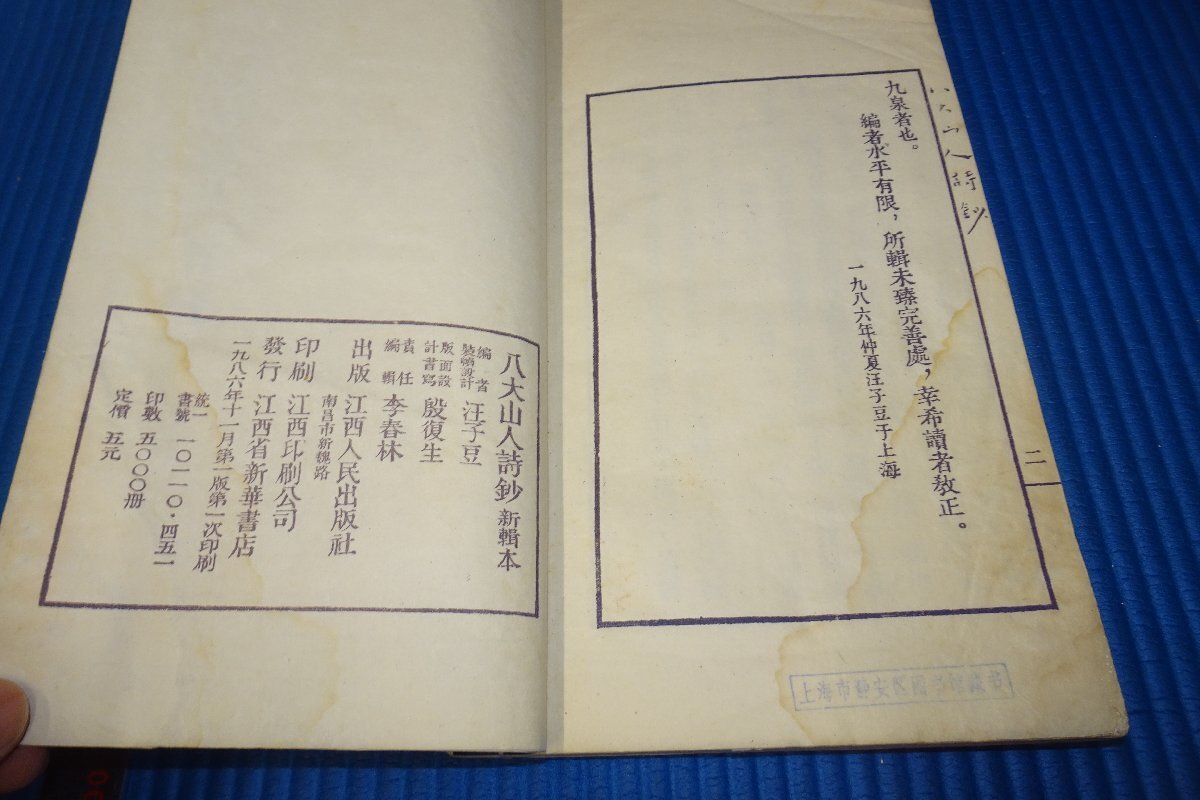 八大山人詩鈔
九泉者也。
編者水平有限，所輯未臻完善處，幸希讀者教正。
一九八六年仲夏汪子豆于上海
二
上海市静安区图书馆藏书
八大山人詩鈔 新輯本
編者 裝幀設計 汪子豆
版面設計書寫 殷復生
責任編輯 李春林
出版 江西人民出版社
南昌市新魏路
印刷 江西印刷公司
發行 江西省新華書店
一九八六年十一月第一版第一次印刷
統一書號 一〇一一〇·四五一
印數 五〇〇〇册
定價 五元